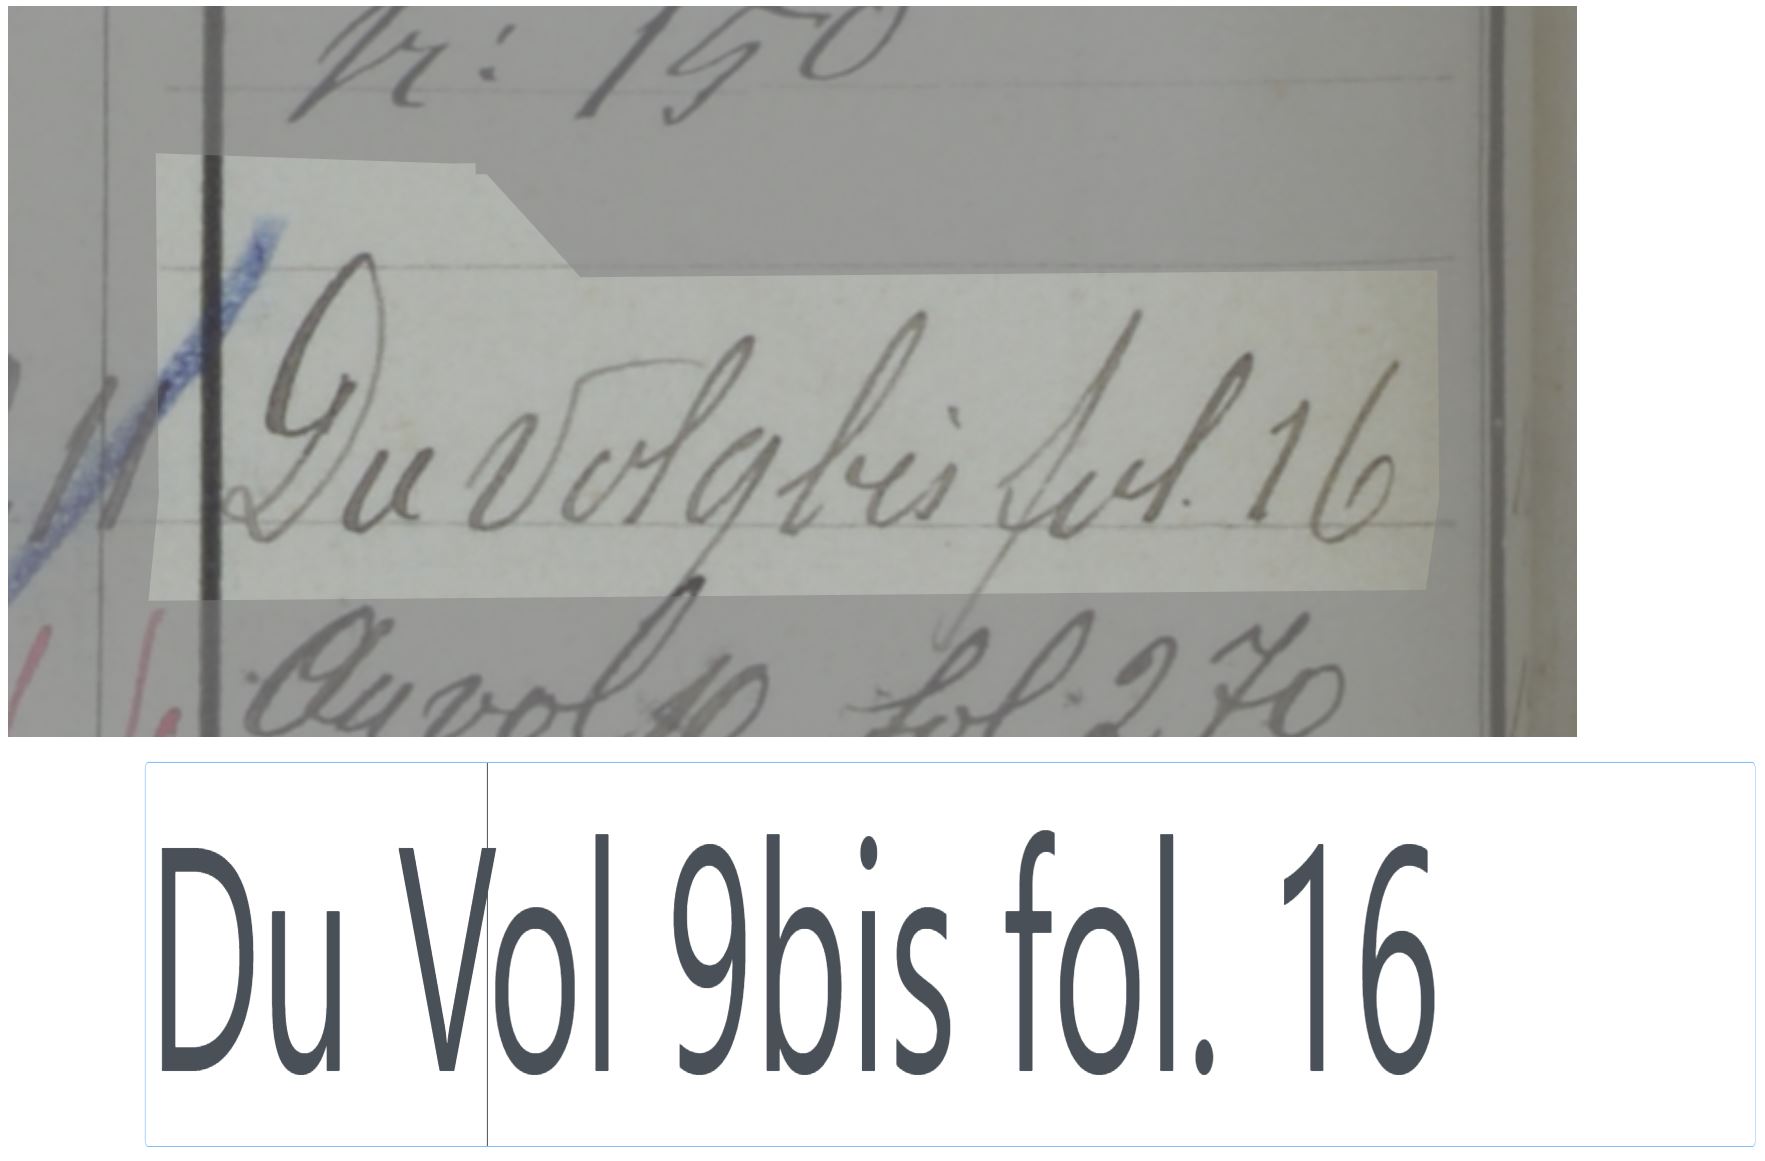 fr: 150
Du Vol 9bis fol. 16
Au vol 10 fol. 270
Du Vol 9bis fol. 16